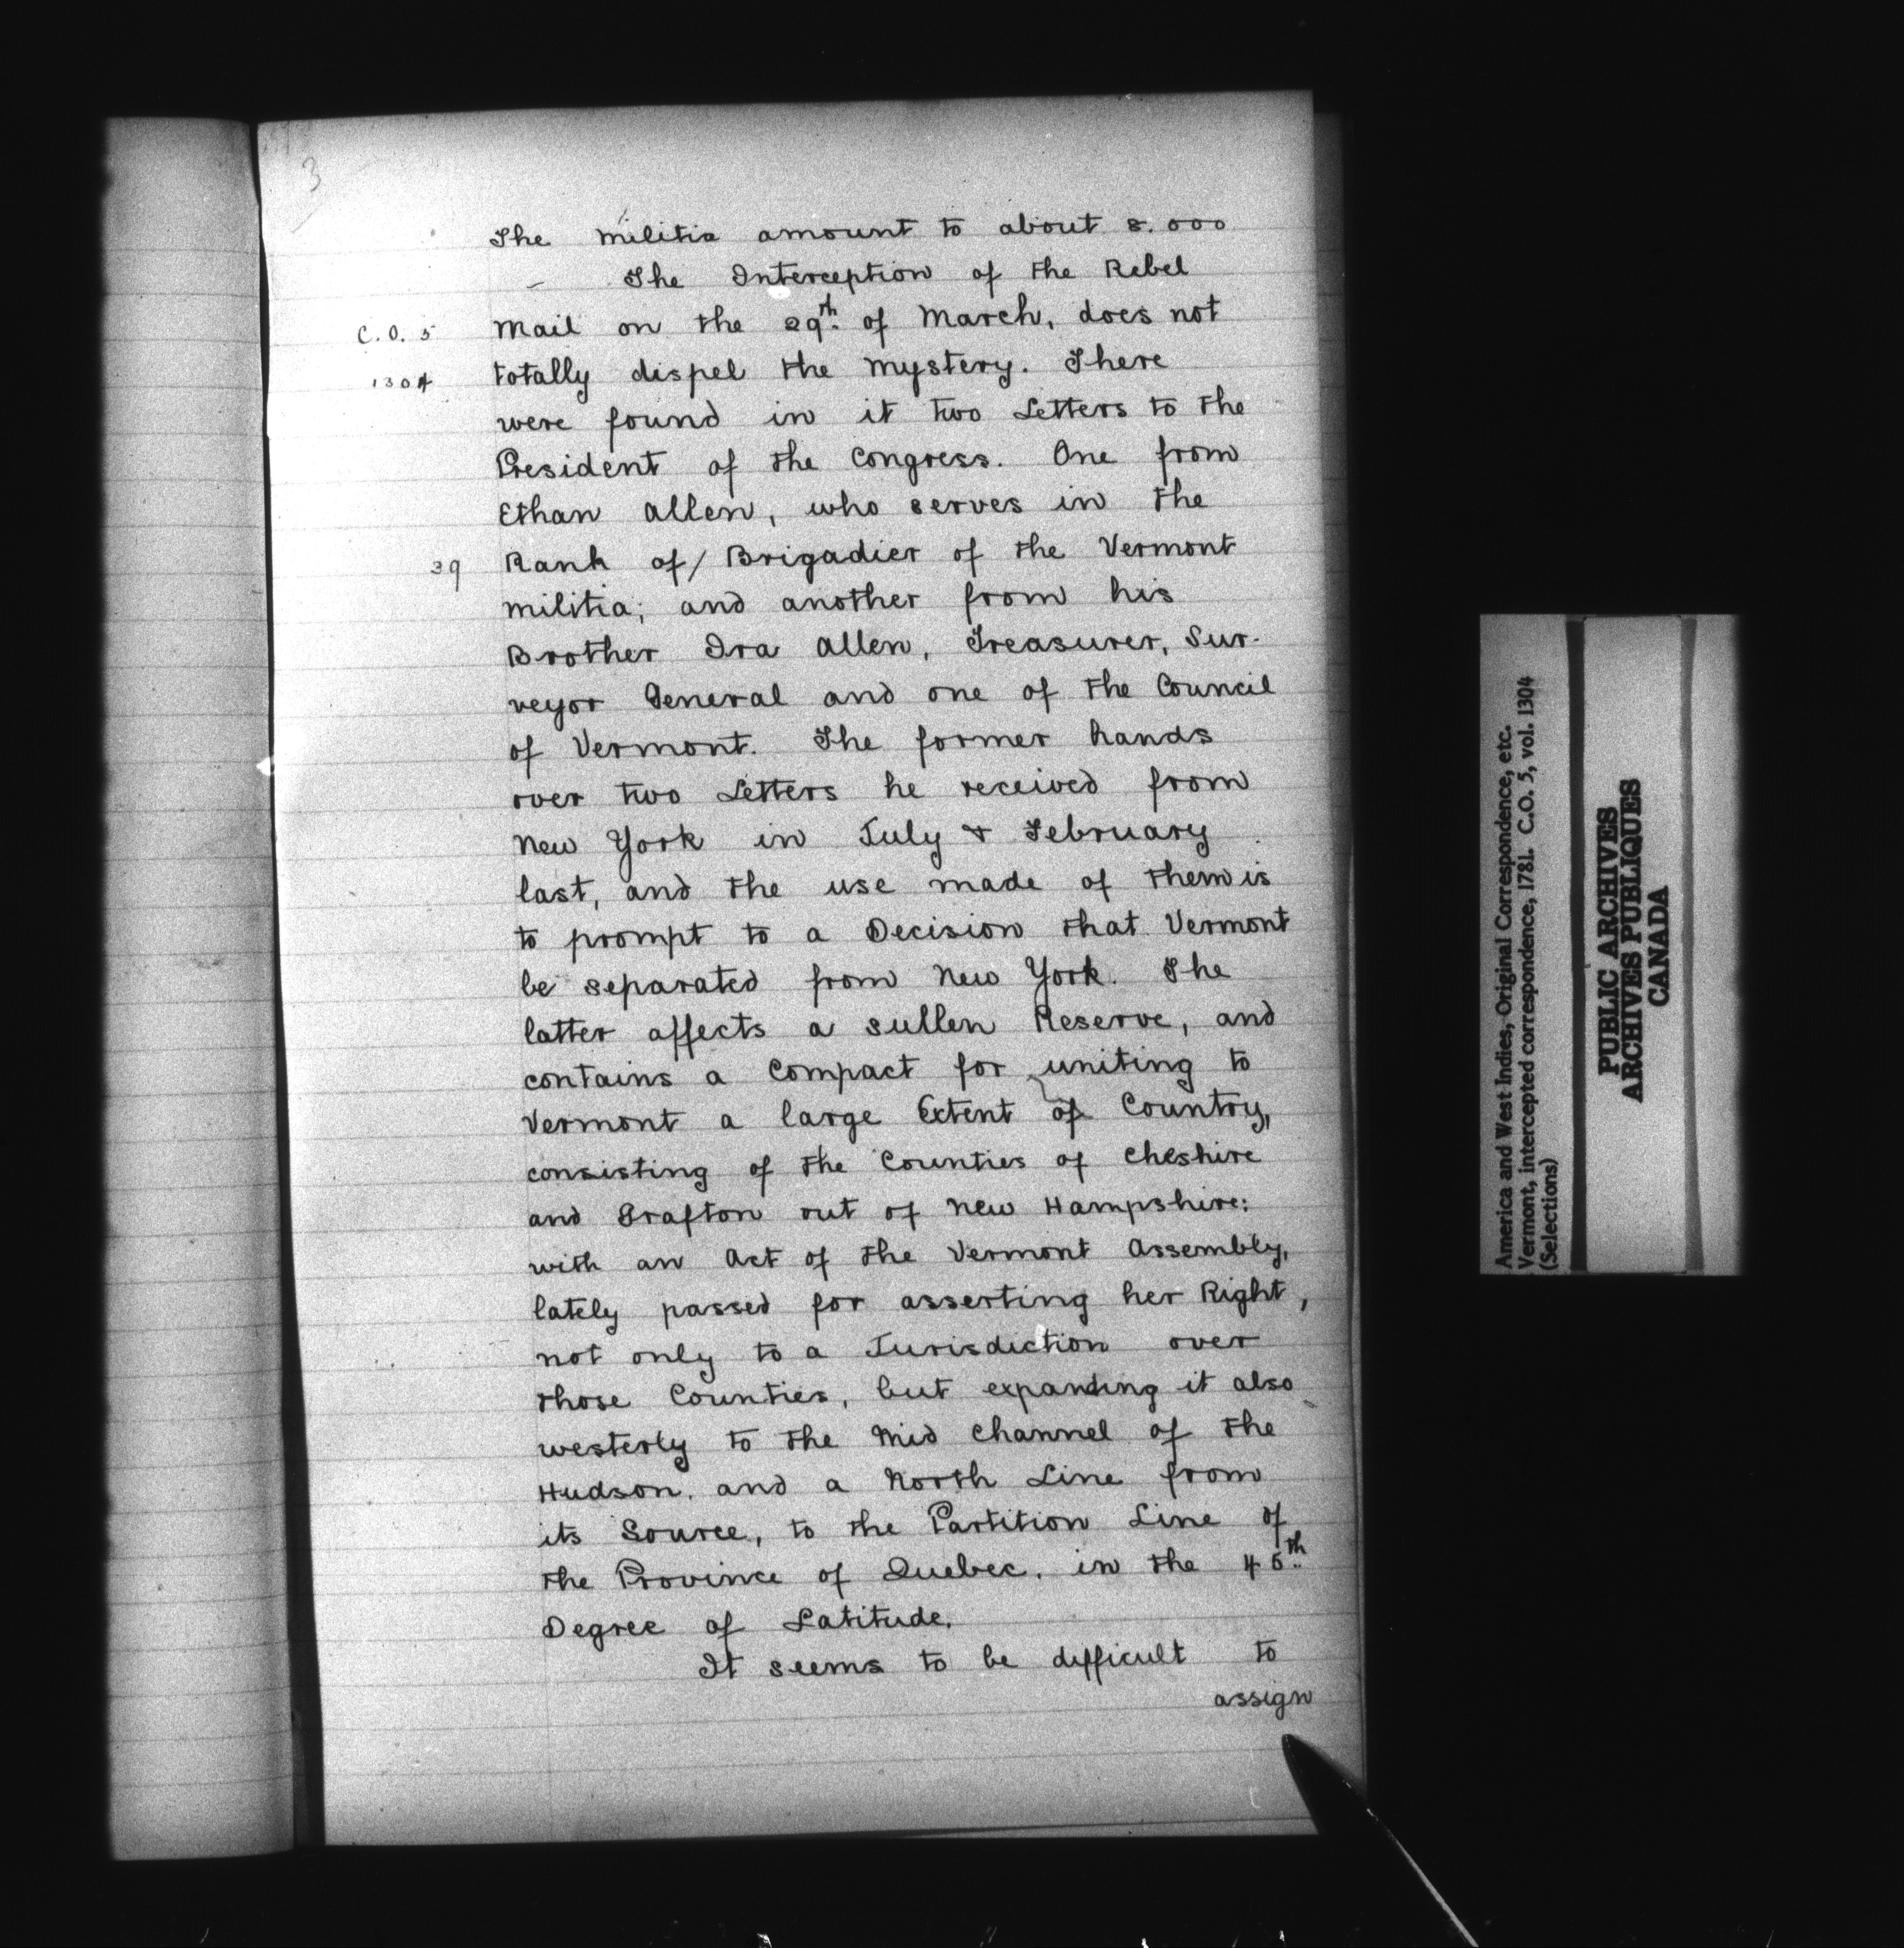 3
The Militia amount to about 8.000
– The Interception of the Rebel
C.O. 5 Mail on the 29th. of March, does not
1304 totally dispel the Mystery. There
were found in it two Letters to the
President of the Congress. One from
Ethan Allen, who serves in the
39 Rank of/ Brigadier of the Vermont
Militia; and another from his
Brother Ira Allen, Treasurer, Sur-
veyor General and one of the Council
of Vermont. The former hands
over two Letters he received from
New York in July & February
last, and the use made of them is
to prompt to a Decision that Vermont
be separated from New York. The
latter affects a sullen Reserve, and
contains a Compact for uniting to
Vermont a large Extent of Country,
consisting of the Counties of Cheshire
and Grafton out of New Hampshire:
with an Act of the Vermont Assembly,
lately passed for asserting her Right,
not only to a Jurisdiction over
those Counties, but expanding it also
westerly to the Mid Channel of the
Hudson, and a North Line from
its Source, to the Partition Line of
the Province of Quebec, in the 45th.
Degree of Latitude.
It seems to be difficult to
assign
America and West Indies, Original Correspondence, etc.
Vermont, intercepted correspondence, 1781. C.O. 5, vol. 1304
(Selections)
PUBLIC ARCHIVES
ARCHIVES PUBLIQUES
CANADA